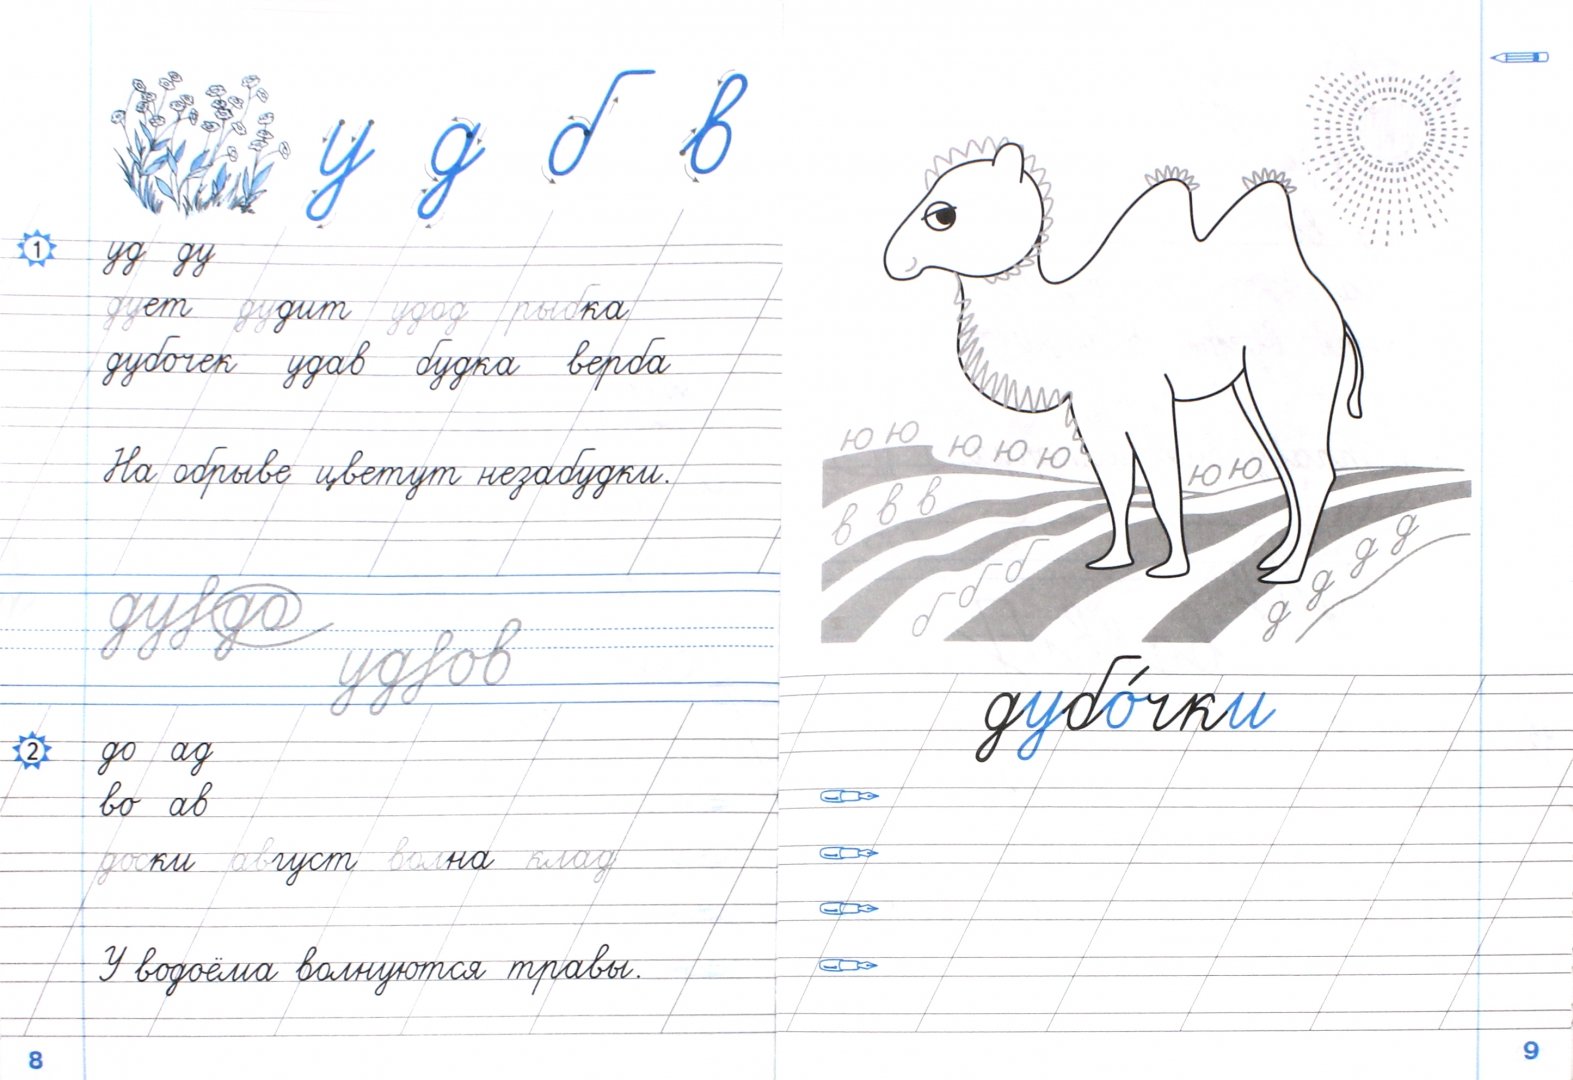 у д б в
1
уд ду
дует дудит удод рыбка
дубочек удав будка верба
На обрыве цветут незабудки.
2
до ад
во ав
доски август волна клад
У водоёма волнуются травы.
8
ю ю ю ю ю ю ю
в в в
б б б
д д д д
дубо́чки
9